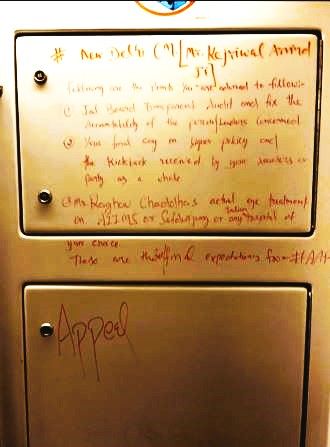 # New Delhi CM [Mr. Kejriwal Arvind
Ji]
Following are the points you are advised to follow:-
① Jal Board Transparent Audit and fix the
Accountability of the person/Leaders concerned
② Your final say on liquor policy and
the kickback received by your leaders or
party as a whole.
③ Mr. Raghav Chaddha's actual eye treatment
on AIIMS or Safdarjung or any Indian hospital of
your choice.
These are the expectations from #AAP
Appeal